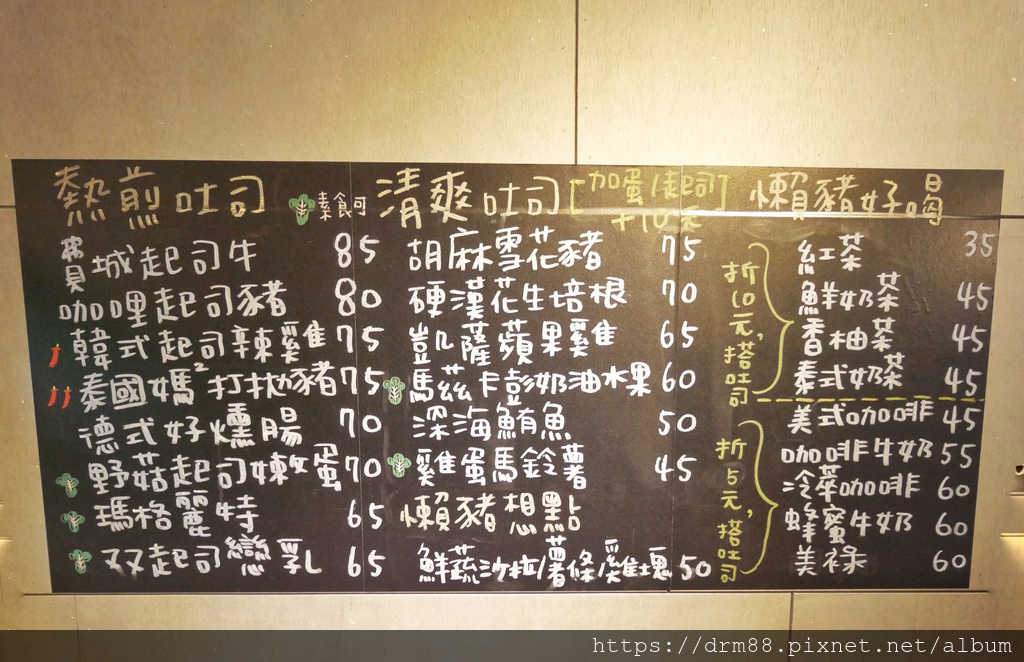 熱煎吐司
費城起司牛 85
咖哩起司豬 80
韓式起司辣雞 75
泰國媽²打拋豬 75
德式好燻腸 70
野菇起司嫩蛋 70
瑪格麗特 65
双起司戀乳 65
素食可
清爽吐司
[加蛋/起司
+10元]
胡麻雪花豬 75
硬漢花生培根 70
凱薩蘋果雞 65
馬茲卡彭奶油水果 60
深海鮪魚 50
雞蛋馬鈴薯 45
懶豬想點
鮮蔬沙拉/薯條/雞塊 50
懶豬好喝
紅茶 35
鮮奶茶 45
香柚茶 45
泰式奶茶 45
折10元,搭吐司
美式咖啡 45
咖啡牛奶 55
冷萃咖啡 60
蜂蜜牛奶 60
美祿 60
折5元,搭吐司
https://drm88.pixnet.net/album